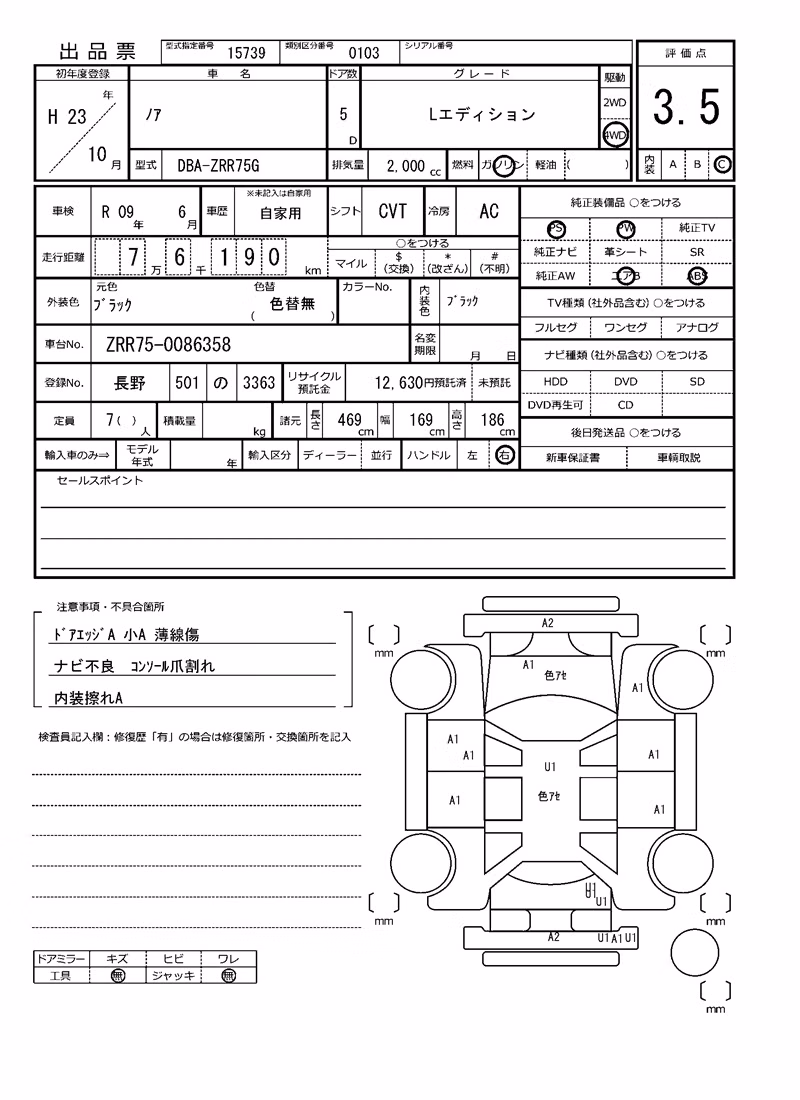 出品票 型式指定番号 15739 類別区分番号 0103 シリアル番号
評価点
初年度登録 車名 ドア数 グレード 駆動
H 23 年 10 月
ノア
5 D
Lエディション
2WD
4WD
3.5
型式 DBA-ZRR75G 排気量 2,000 cc 燃料 ガソリン 軽油 ( )
内装 A B C
車検 R 09 年 6 月 車歴 ※未記入は自家用 自家用 シフト CVT 冷房 AC
純正装備品 ○をつける
PS PW 純正TV
走行距離 7 万 6 千 1 9 0 km
○をつける
マイル $ (交換) * (改ざん) # (不明)
純正ナビ 革シート SR
純正AW エアB ABS
外装色 元色 ブラック 色替 ( 色替無 ) カラーNo. 内装色 ブラック
TV種類(社外品含む)○をつける
フルセグ ワンセグ アナログ
車台No. ZRR75-0086358 名変期限 月 日
ナビ種類(社外品含む)○をつける
登録No. 長野 501 の 3363 リサイクル預託金 12,630円預託済 未預託
HDD DVD SD
DVD再生可 CD
定員 7( ) 人 積載量 kg 諸元 長さ 469 cm 幅 169 cm 高さ 186 cm
後日発送品 ○をつける
輸入車のみ⇒ モデル年式 年 輸入区分 ディーラー 並行 ハンドル 左 右
新車保証書 車輌取説
セールスポイント
注意事項・不具合箇所
ドアエッジA 小A 薄線傷
ナビ不良 コンソール爪割れ
内装擦れA
検査員記入欄:修復歴「有」の場合は修復箇所・交換箇所を記入
A2
mm mm
A1
色アセ
A1
A1
A1
A1
U1
色アセ
A1
A1
U1
U1
U1
mm mm
A2 U1 A1 U1
mm
ドアミラー キズ ヒビ ワレ
工具 無 ジャッキ 無